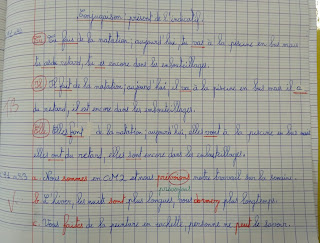 Conjugaison présent de l'indicatif.
Tu fais de la natation, aujourd'hui, tu vas à la piscine en bus mais
tu as du retard, tu es encore dans les embouteillages.
Il fait de la natation, aujourd'hui, il va à la piscine en bus mais il a
du retard, il est encore dans les embouteillages.
Elles font de la natation, aujourd'hui, elles vont à la piscine en bus mais
elles ont du retard, elles sont encore dans les embouteillages.
a. Nous sommes en CM2 et nous prenons notre travail sur la semaine.
prévoyons
b. L'hiver, les nuits sont plus longues, vous dormez plus longtemps.
c. Vous faites de la peinture en cachette, personne ne peut le savoir.